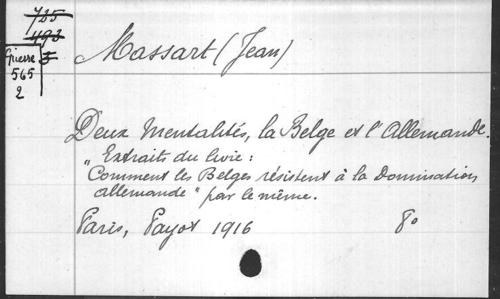 725
493
Guerre 5
565
2
Massart (Jean)
Deux Mentalités, la Belge et l'Allemande.
"Extraits du livre :
Comment les Belges résistent à la Domination
allemande" par le même.
Paris, Payot 1916 8°